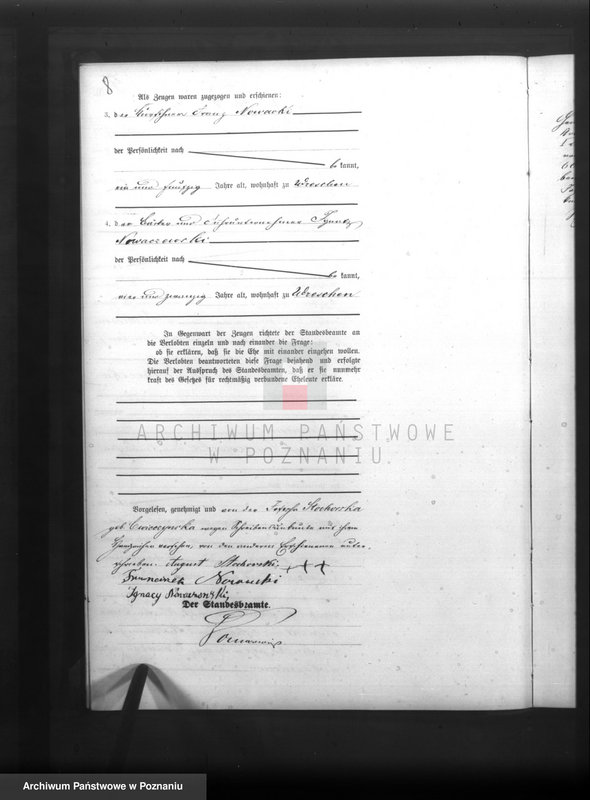 8
Als Zeugen waren zugezogen und erschienen:
3. der Kürschner Franz Nowacki
der Persönlichkeit nach
be kannt,
ein und fünfzig Jahre alt, wohnhaft zu Wreschen
4. der und Ignatz
der Persönlichkeit nach
be kannt,
und zwanzig Jahre alt, wohnhaft zu Wreschen
In Gegenwart der Zeugen richtete der Standesbeamte an
die Verlobten einzeln und nach einander die Frage:
ob sie erklären, daß sie die Ehe mit einander eingehen wollen.
Die Verlobten beantworteten diese Frage bejahend und erfolgte
hierauf der Ausspruch des Standesbeamten, daß er sie nunmehr
kraft des Gesetzes für rechtmäßig verbundene Eheleute erkläre.
ARCHIWUM PAŃSTWOWE
W POZNANIU
Vorgelesen, genehmigt und von der Josepha Stachowska
geb. wegen Schreibensunkunde mit ihrem
Handzeichen versehen, von den anderen Erschienenen unter
schrieben. August +++
Franciszek Nowacki
Ignacy
Der Standesbeamte.
Archiwum Państwowe w Poznaniu